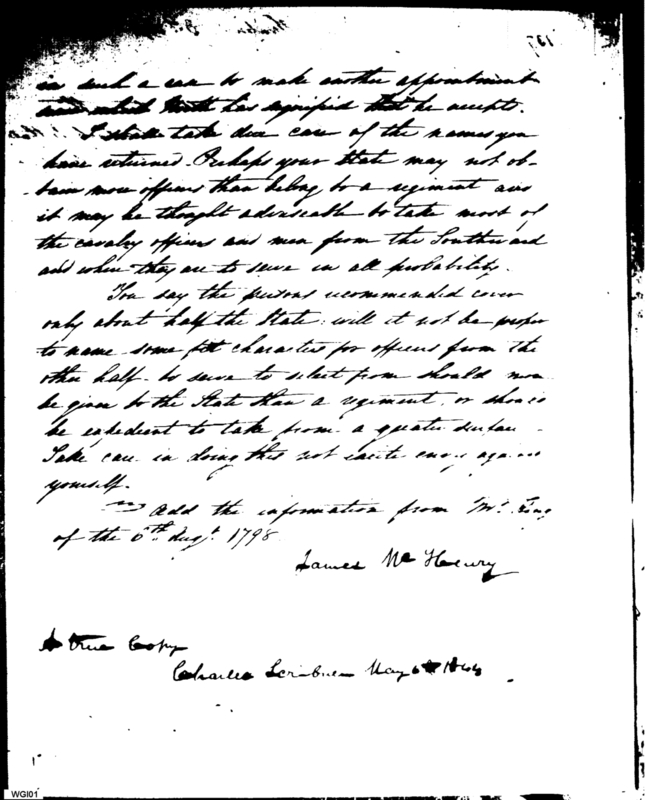 in such a case to make another appointment
North has signified that he accepts.
I shall take due care of the names you
have returned. Perhaps your State may not ob-
tain more officers than belong to a regiment and
it may be thought adviseable to take most of
the cavalry officers and men from the Southward
and where they are to serve in all probability.
You say the persons recommended cover
only about half the State: will it not be proper
to name some fit characters for officers from the
other half to serve to select from should more
be given to the State than a regiment, or should
be expedient to take from a greater surface.
Take care in doing this not excite envy against
yourself.
Add the information from Mr. King
of the 6th Augt. 1798
James McHenry
A true Copy
Charles Scribner May 6th
WGI01